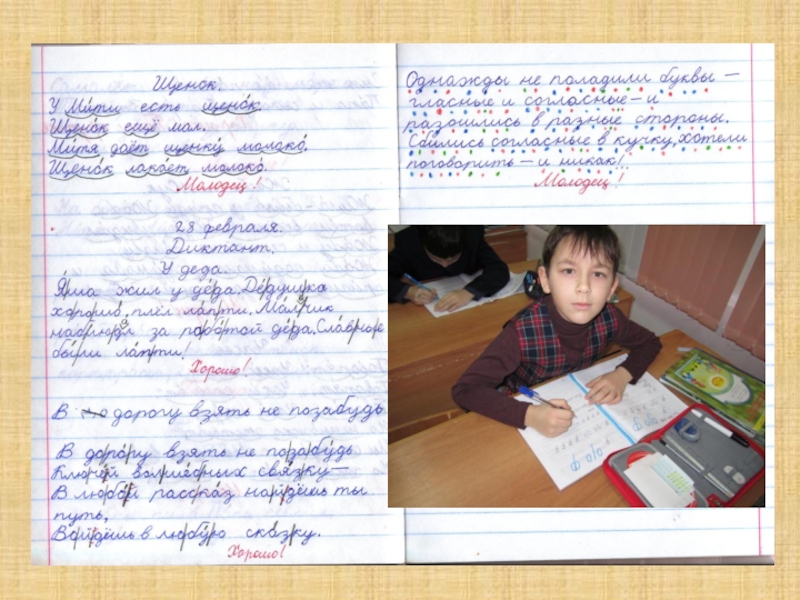 Щенок.
У Мити есть щенок.
Щенок ещё мал.
Митя даёт щенку молоко.
Щенок лакает молоко.
Молодец!
28 февраля.
Диктант.
У деда.
Яша жил у деда. Дедушка
хорошо плёл лапти. Мальчик
наблюдал за работой деда. Славные
были лапти!
Хорошо!
В дорогу взять не позабудь
В дорогу взять не позабудь
Ключей волшебных связку —
В любой рассказ найдёшь ты
путь,
Войдёшь в любую сказку.
Хорошо!
Однажды не поладили буквы —
гласные и согласные — и
разошлись в разные стороны.
Сбились согласные в кучку, хотели
поговорить — и никак!
Молодец!